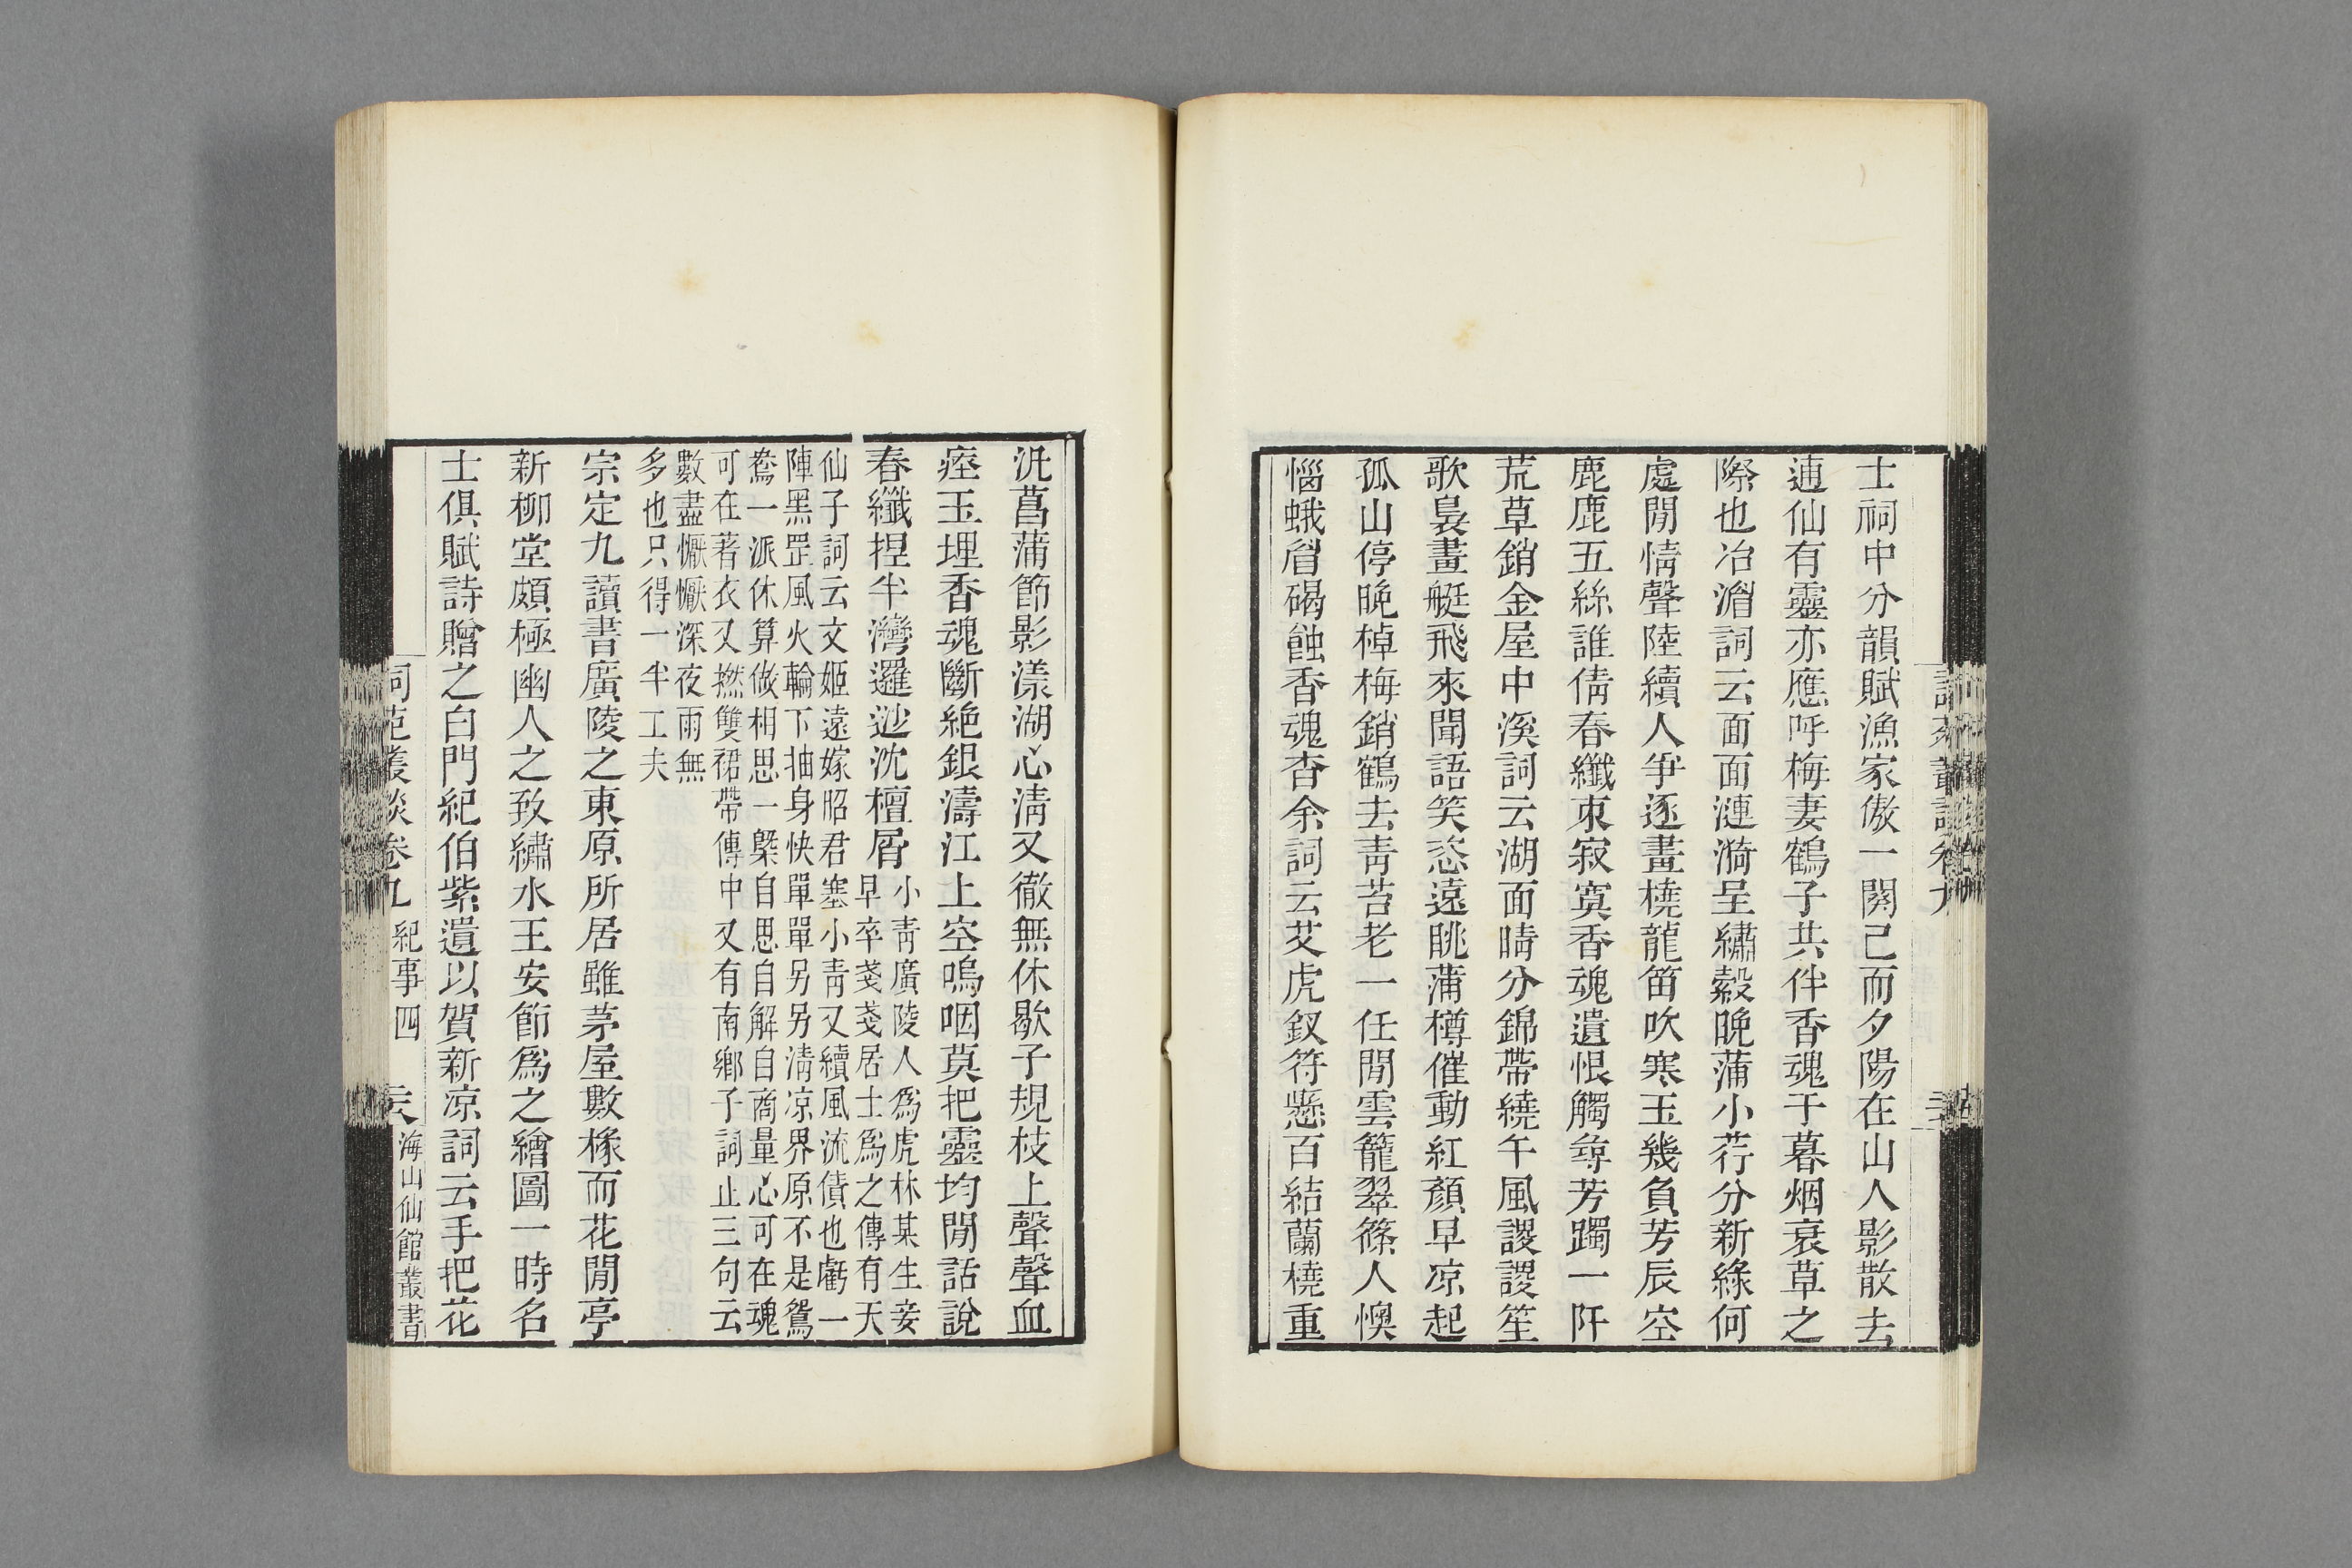 士祠中分韻賦漁家傲一闋已而夕陽在山人影散去
逋仙有靈亦應呼梅妻鶴子共伴香魂于暮烟衰草之
際也冶湄詞云面面漣漪呈繡縠晚蒲小荇分新綠何
處閒情聲陸續人爭逐畫橈龍笛吹寒玉幾負芳辰空
鹿鹿五絲誰倩春纖束寂寞香魂遺恨觸尋芳躅一阡
荒草銷金屋中溪詞云湖面晴分錦帶繞午風謖謖笙
歌裊畫艇飛來聞語笑恣遠眺蒲樽催動紅顏早凉起
孤山停晚棹梅銷鶴去靑苔老一任閒雲籠翠篠人懊
惱蛾眉碣蝕香魂杳余詞云艾虎釵符懸百結蘭橈重
汎菖蒲節影漾湖心淸又徹無休歇子規枝上聲聲血
瘞玉埋香魂斷絕銀濤江上空嗚咽莫把靈均閒話說
春纖捏半灣邏逤沈檀屑
小靑廣陵人爲虎林某生妾
早卒戔戔居士爲之傳有天
仙子詞云文姬遠嫁昭君塞小靑又續風流債也虧一
陣黑罡風火輪下抽身快單單另另淸凉界原不是鴛
鴦一派休算做相思一槩自思自解自商量心可在魂
可在著衣又撚雙裙帶傳中又有南鄉子詞止三句云
數盡懨懨深夜雨無
多也只得一半工夫
宗定九讀書廣陵之東原所居雖茅屋數椽而花閒亭
新柳堂頗極幽人之致繡水王安節爲之繪圖一時名
士俱賦詩贈之白門紀伯紫遺以賀新凉詞云手把花
詞苑叢談卷九 紀事四
海山仙館叢書